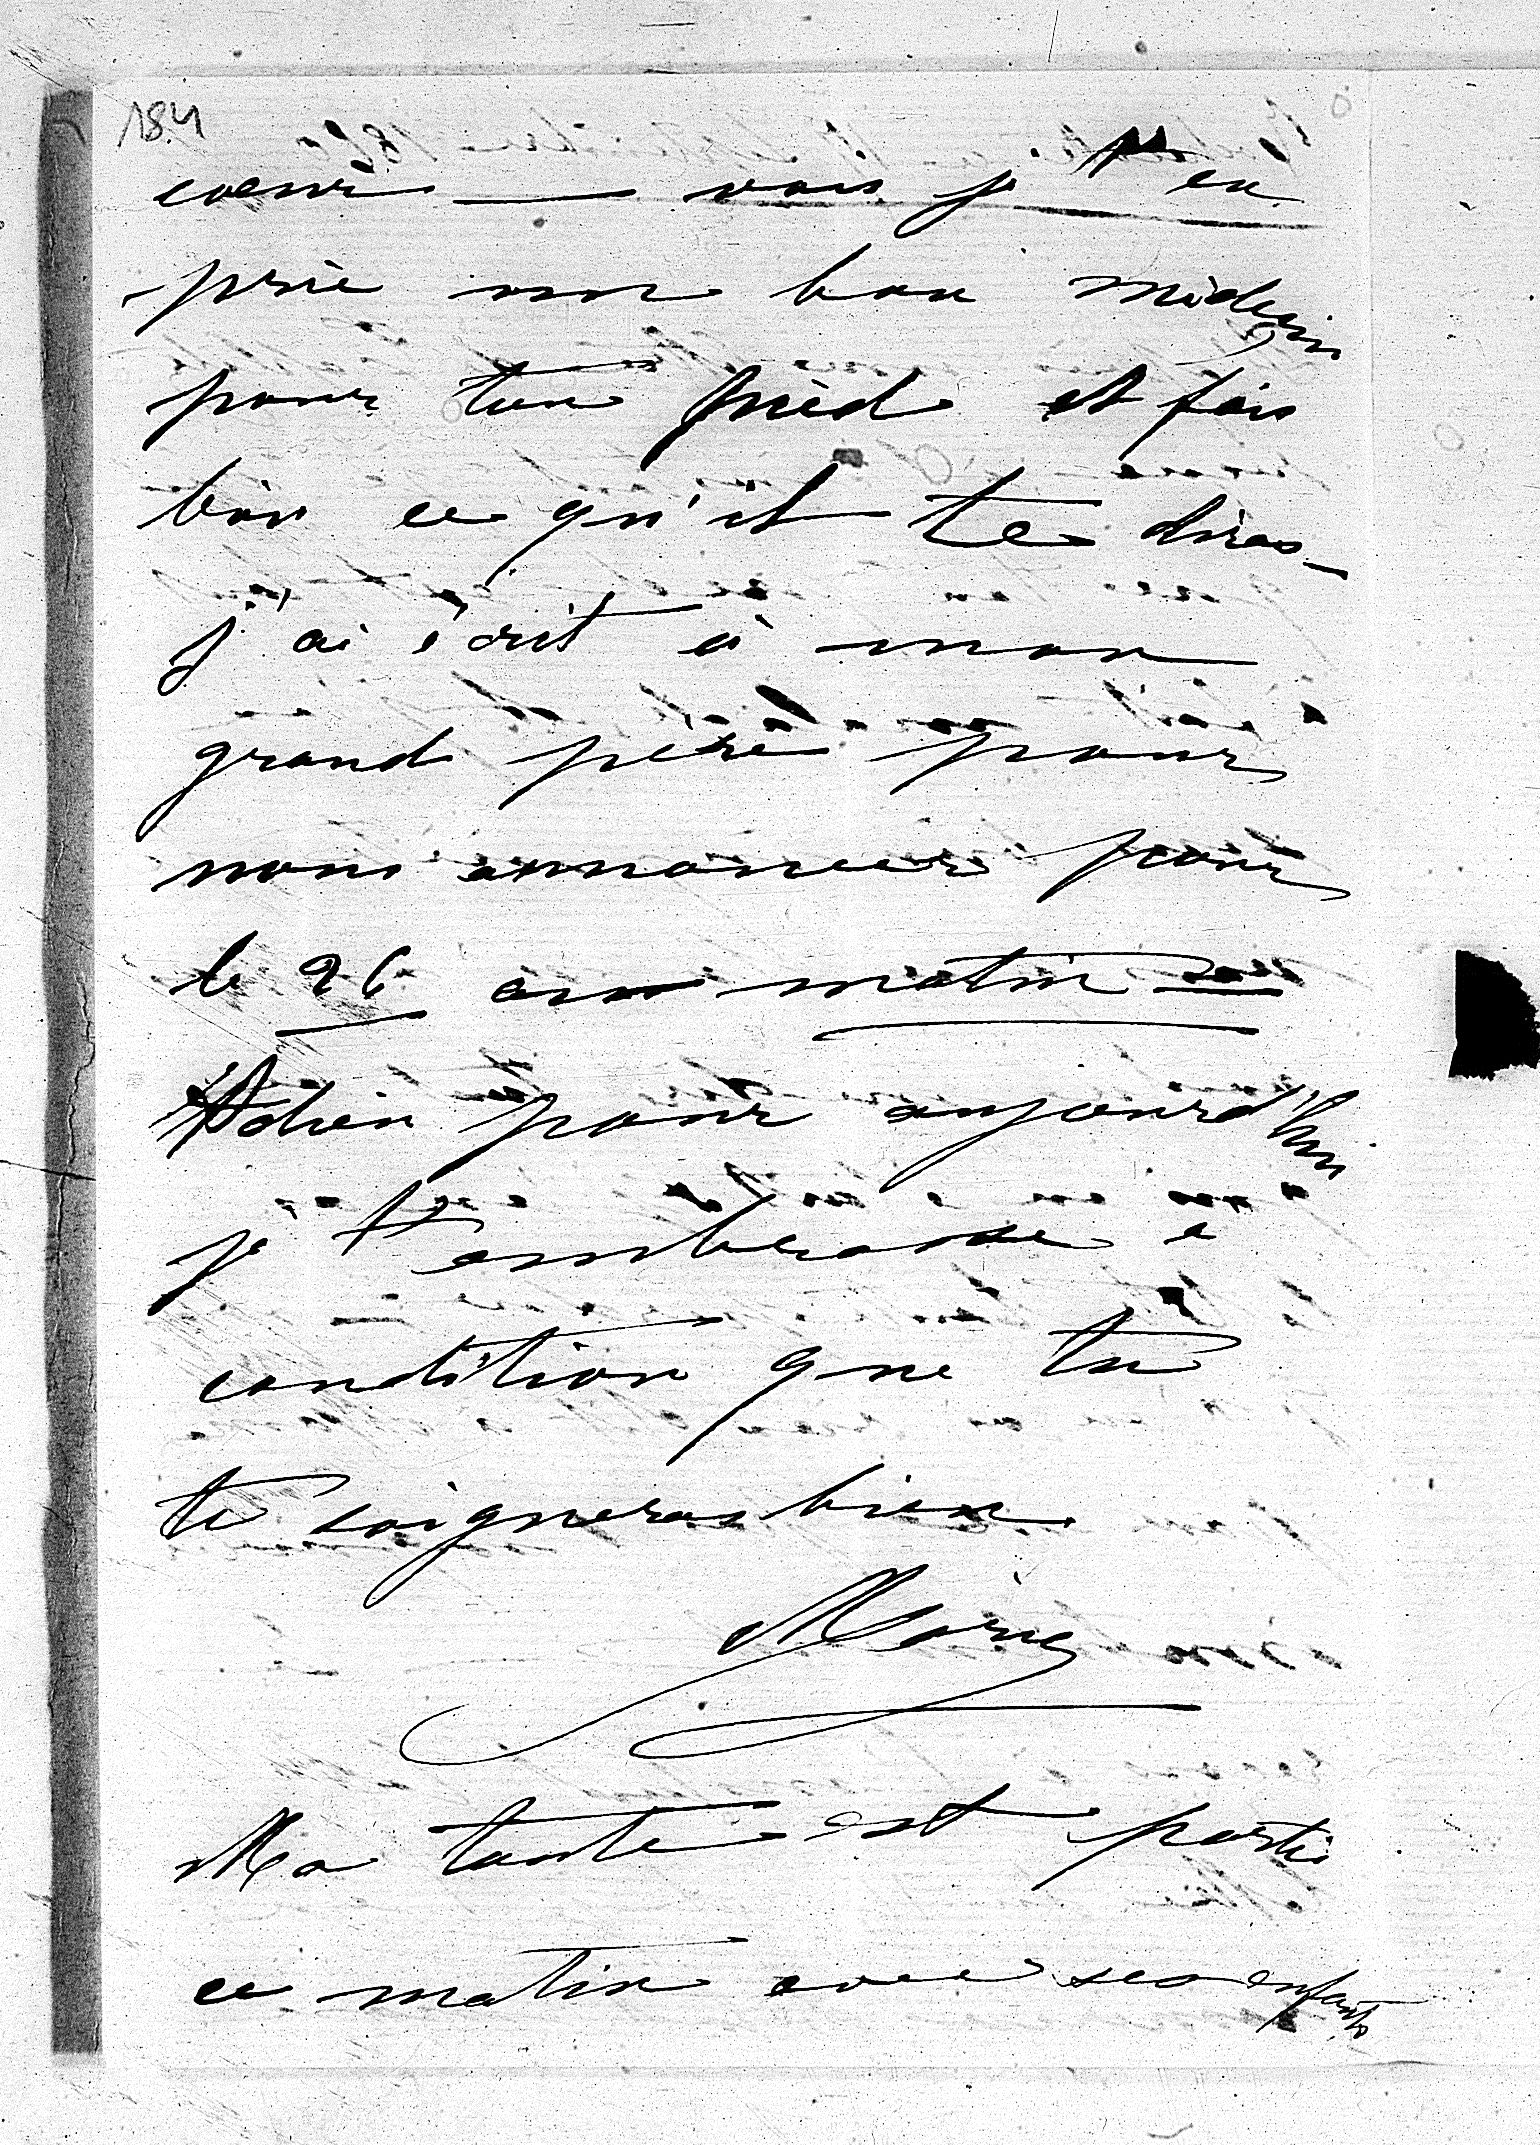 184
coeur — vois je t'en
prie mon bon médecin
pour ton pied et fais
bien ce qu'il te diras_
j'ai écrit à mon
grand père pour
nous annoncer pour
le 26 au matin
Adieu pour aujourd'hui
je t'embrasse a
condition que tu
te soigneras bien
Marie
Ma tante est partie
ce matin avec ses enfants